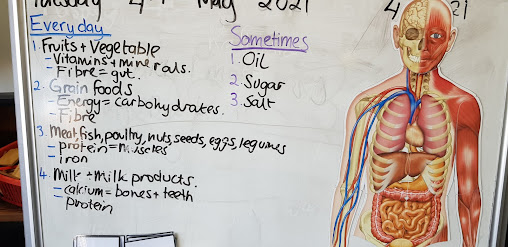 Tuesday 4th May 2021
4 21
Everyday
1. Fruits + Vegetable
- Vitamins + minerals.
- Fibre = gut.
2. Grain foods
- Energy = carbohydrates.
- Fibre
3. Meat, fish, poultry, nuts, seeds, eggs, legumes
- protein = muscles
- iron
4. Milk + milk products.
- calcium = bones + teeth
- protein
Sometimes
1. Oil
2. Sugar
3. Salt